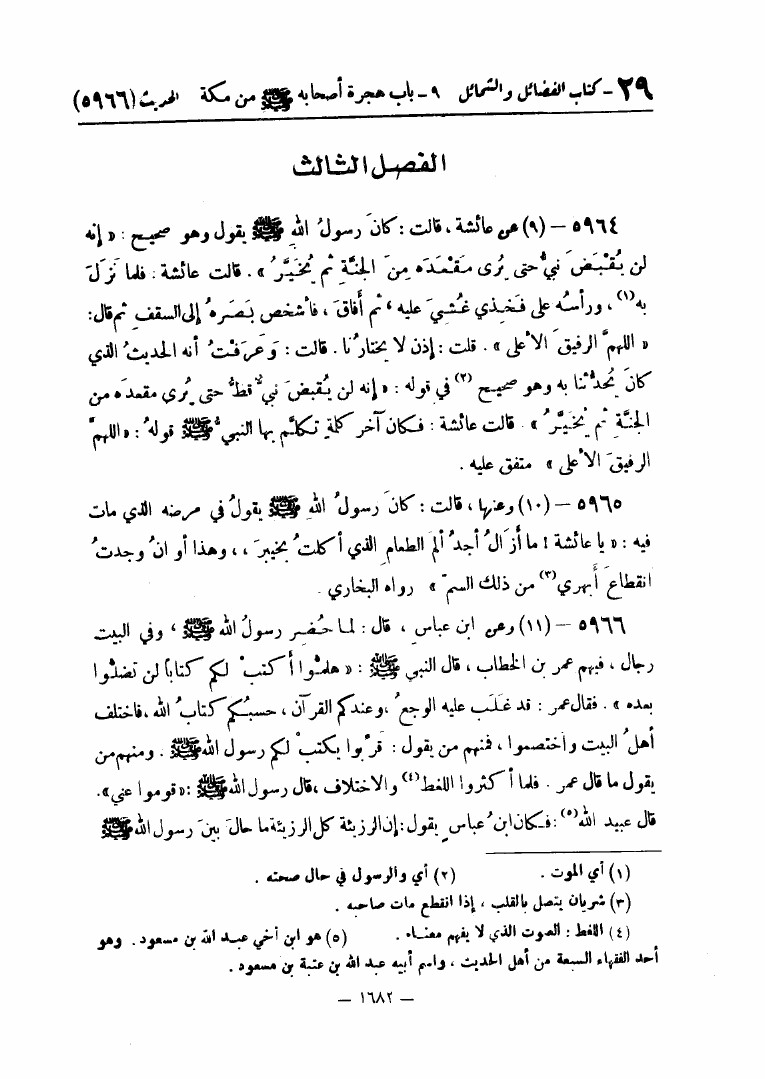 ٢٩ - كتاب الفضائل والشمائل ٩ - باب هجرة أصحابه ﷺ من مكة الحديث (٥٩٦٦)
الفصل الثالث
٥٩٦٤ - (٩) عن عائشة، قالت: كانَ رسولُ اللهِ ﷺ يقول وهو صحيح: « إنه
لن يُقْبَضَ نبيٌّ حتى يُرى مَقْعَدَه مِنَ الجنَّةِ ثم يُخَيَّرُ ». قالت عائشة: فلما نَزَلَ
به(١)، ورأسُه على فَخِذي غُشِيَ عليه، ثم أفاقَ، فأشخص بَصَرَهُ إلى السقف ثم قال:
« اللهمَّ الرفيقَ الأعلى ». قلت: إذن لا يختارُنا. قالت: وَعَرَفتُ أنه الحديثُ الذي
كانَ يُحَدِّثنا به وهو صحيح(٢) في قوله: « إنه لن يُقبضَ نبيٌّ قطُّ حتى يُرى مقعدَه من
الجنَّةِ ثم يُخَيَّرُ ». قالت عائشة: فكان آخر كلمةٍ تكلَّم بها النبيُّ ﷺ قولهُ: « اللهمَّ
الرفيقَ الأعلى » متفق عليه.
٥٩٦٥ - (١٠) وعنها، قالت: كانَ رسولُ اللهِ ﷺ يقولُ في مرضه الذي مات
فيه: « يا عائشة! ما أزالُ أجدُ ألمَ الطعام الذي أكلتُ بخيبرَ،، وهذا أوانُ وجدتُ
انقطاعَ أَبهري(٣) من ذلك السمّ » رواه البخاري.
٥٩٦٦ - (١١) وعن ابن عباسٍ، قال: لما حُضِر رسولُ الله ﷺ، وفي البيت
رجال، فيهم عمر بن الخطاب، قال النبي ﷺ: « هلمُّوا أكتبْ لكم كتاباً لن تضلُّوا
بعده ». فقال عمر: قد غلَب عليه الوجعُ، وعندكم القرآن، حسبُكم كتابُ الله، فاختلف
أهلُ البيت واختصموا، فمنهم من يقول: قرِّبوا يكتبْ لكم رسول الله ﷺ. ومنهم من
يقول ما قال عمر. فلما أكثروا اللغط(٤) والاختلاف، قال رسول الله ﷺ: « قوموا عني ».
قال عبيد الله(٥): فكان ابنُ عباسٍ يقول: إن الرزيئة كل الرزيئة ما حالَ بينَ رسول الله ﷺ
(١) أي الموت. (٢) أي والرسول في حال صحته.
(٣) شريان يتصل بالقلب، إذا انقطع مات صاحبه.
(٤) اللغط: الصوت الذي لا يفهم معناه. (٥) هو ابن أخي عبد الله بن مسعود. وهو
أحد الفقهاء السبعة من أهل الحديث، واسم أبيه عبد الله بن عتبة بن مسعود.
- ١٦٨٢ -